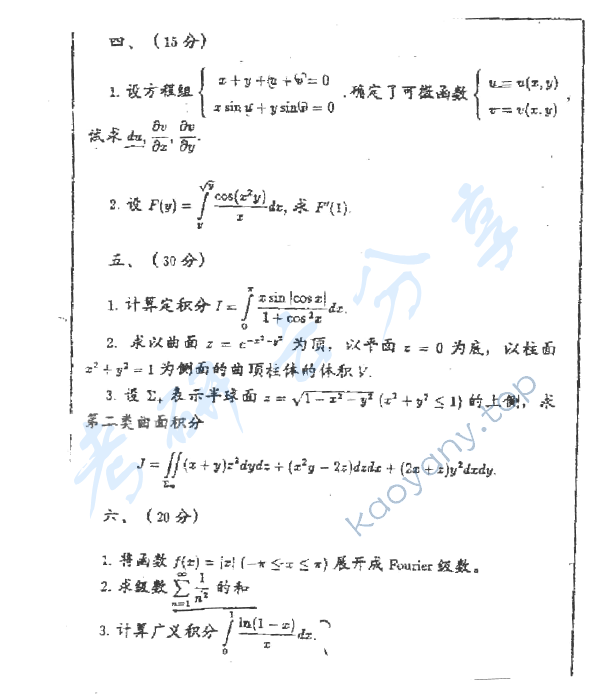 四、（15分）
1. 设方程组 { x + y + u + v = 0
x sin u + y sin v = 0 . 确定了可微函数 { u = u(x, y)
v = v(x. y) ,
试求 du, ∂v/∂x, ∂v/∂y.
2. 设 F(y) = ∫_y^{√y} cos(x²y)/x dx, 求 F′(1).
五、（30分）
1. 计算定积分 I = ∫_0^π x sin|cos x| / (1 + cos²x) dx.
2. 求以曲面 z = e^{-x²-y²} 为顶, 以平面 z = 0 为底, 以柱面
x² + y² = 1 为侧面的曲顶柱体的体积 V.
3. 设 Σ 表示半球面 z = √(1 − x² − y²) (x² + y² ≤ 1) 的上侧, 求
第二类曲面积分
J = ∬_Σ (x + y)z²dydz + (x²y − 2z)dzdx + (2x + z)y²dxdy.
六、（20分）
1. 将函数 f(x) = |x| (−π ≤ x ≤ π) 展开成 Fourier 级数。
2. 求级数 ∑_{n=1}^∞ 1/n² 的和
3. 计算广义积分 ∫_0^1 ln(1 − x)/x dx.
考研云分享
kaoyany.top